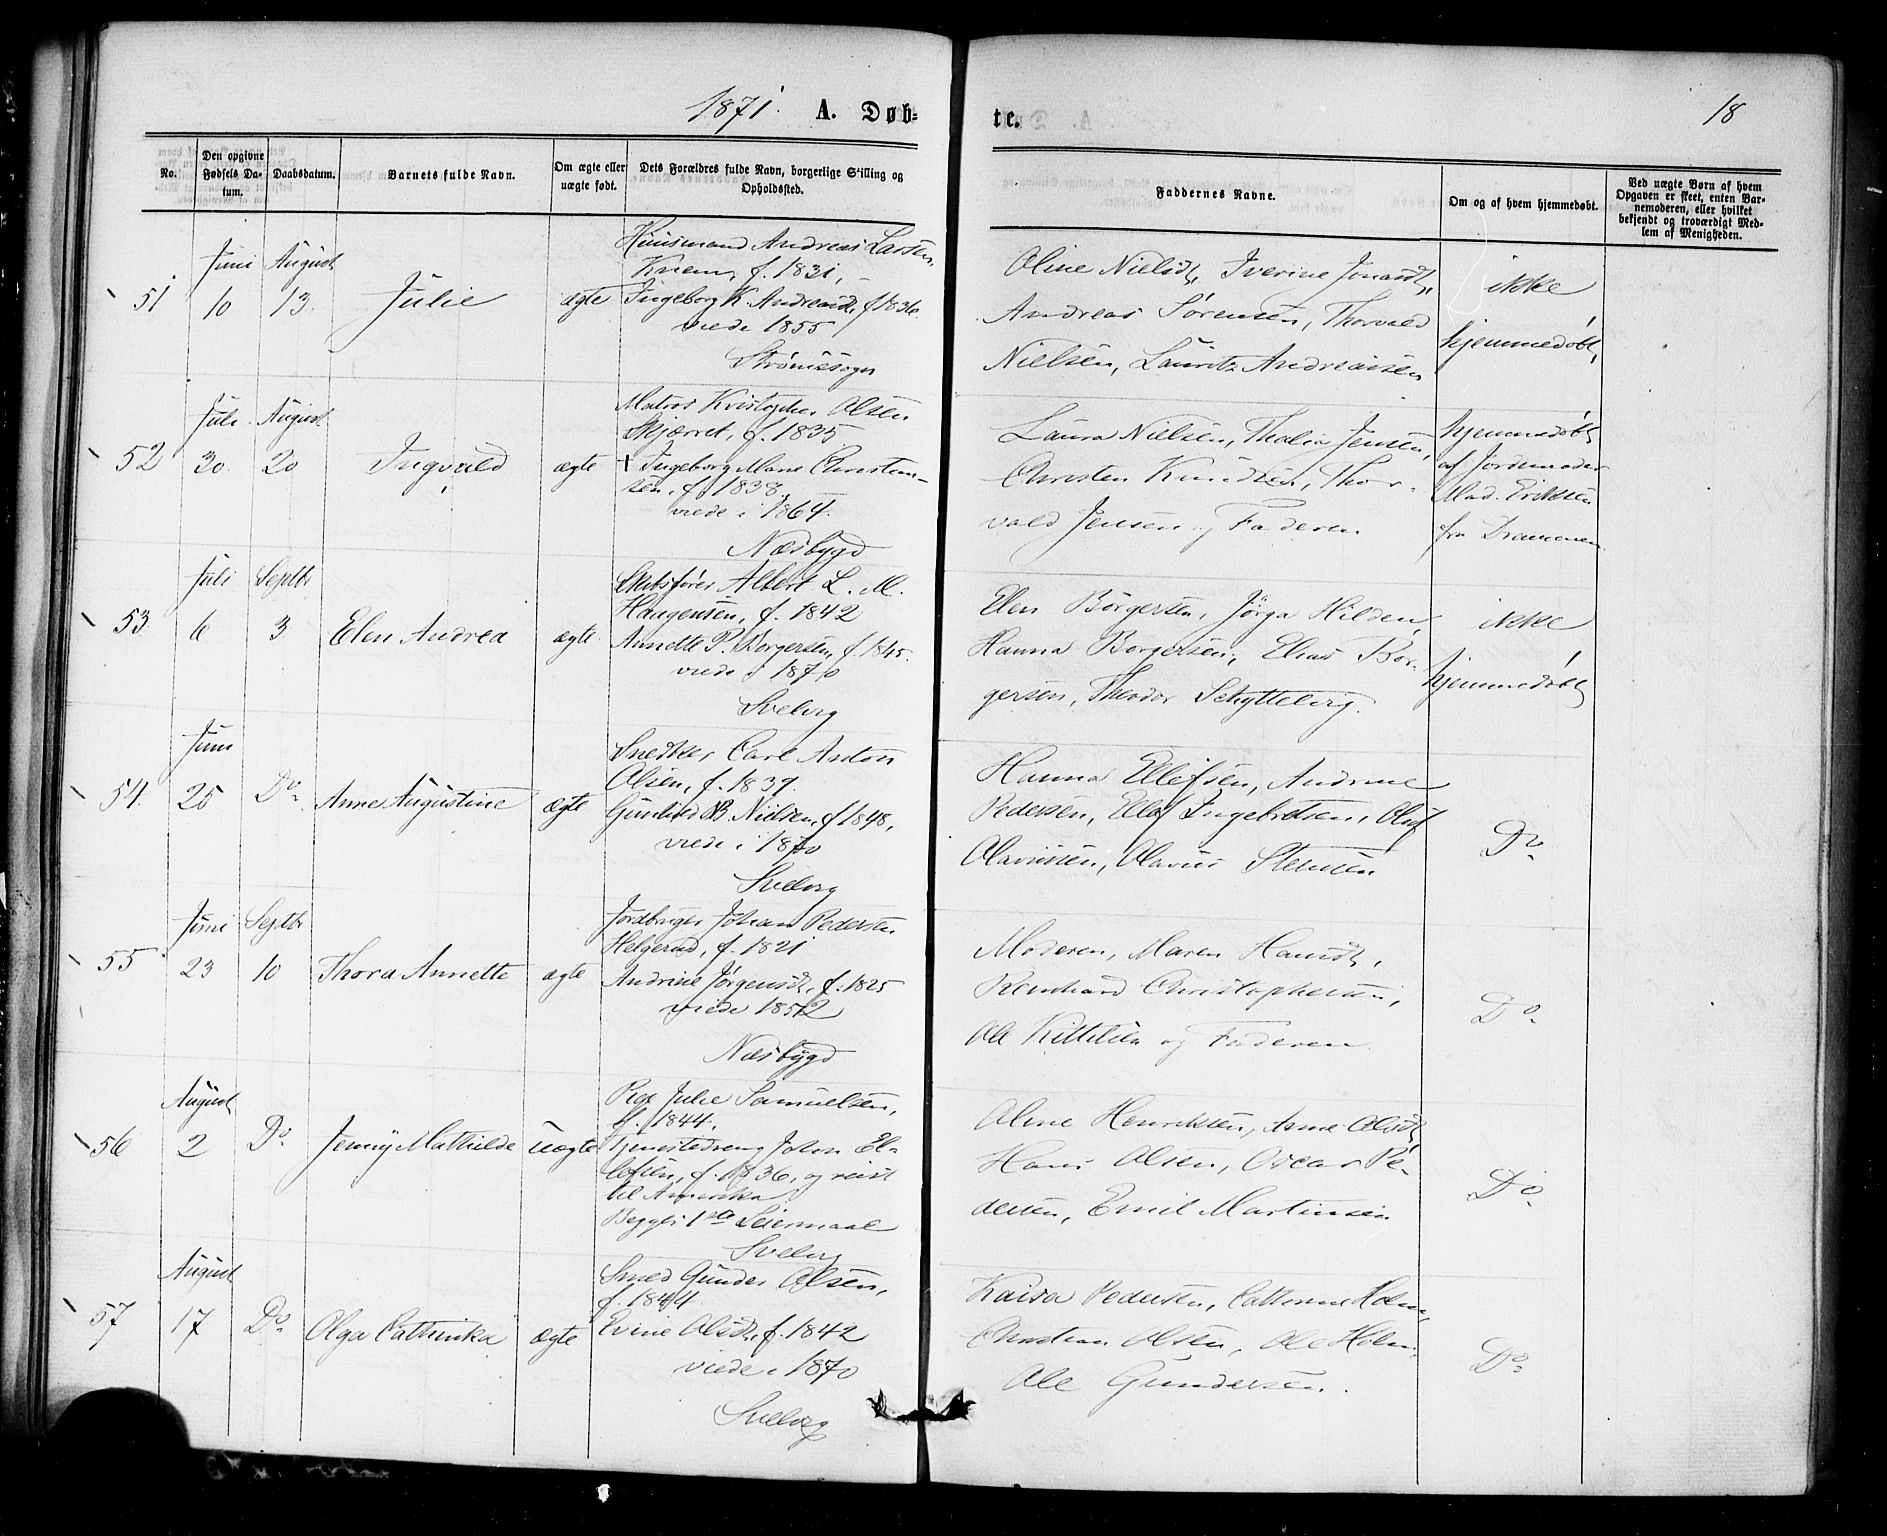 1871. A. Døb-
te. 18
No. Den opgivne Fødsels Da-tum. Daabsdatum. Barnets fulde Navn. Om ægte eller uægte født. Dets Forældres fulde Navn, borgerlige Stilling og Opholdssted.
Faddernes Navne. Om og af hvem hjemmedøbt. Ved uægte Børn af hvem Opgaven er skeet, enten Bar-nemoderen, eller hvilket bekjendt og troværdigt Med-lem af Menigheden.
51 Juni 10 August 13. Julie ægte
Huusmand Andreas Larsen
Knem, f. 1831,
Ingeborg K. Andreasdt, f. 1836.
viede 1855
Strømssogn
Oline Nielsdt, Iverine Jonasdt,
Andreas Sørensen, Thorvald
Nielsen, Lauritz Andreassen
ikke
hjemmedøbt,
52 Juli 30. August 20 Ingvald ægte
Matros Kristopher Olsen
Skjærret, f. 1835.
Ingeborg Marie Christen-
sen, f. 1838.
viede i 1864.
Næsbygd
Laura Nielsen, Thalia Jensen,
Christen Knudsen, Thor-
vald Jensen og Faderen
hjemmedøbt
af Jordemoder
Mad. Eriksen
fra Drammen
53 Juli 6 Septbr 3 Elen Andrea ægte
Skibsfører Albert L. M.
Haagensen, f. 1842
Annette P. Borgersen, f. 1845.
viede i 1870
Svelvig
Elen Børgersen, Jørga Hilden,
Hanna Borgersen, Elias Bor-
gersen, Theodor Schyttelvig.
ikke
hjemmedøbt
54. Juni 25 Do. Anne Augustine ægte
Snedker Carl Anton
Olsen, f. 1839.
Gunhild B. Nielsen, f. 1848,
viede i 1870
Svelvig
Hanna Ellefsen, Andrine
Pedersen, Ellef Ingebretsen, Oluf
Olaviusen, Olavus Stensen
Do.
55 Juni 23 Septbr 10 Thora Annette ægte
Jordbruger Johan Pedersen
Helgerud, f. 1821
Andrine Jørgensdt, f. 1825
viede 1852
Næsbygd
Moderen, Maren Hansdt,
Reinhard Christophersen,
Ole Kittilsen og Faderen
Do.
56 August 2 Do. Jenny Mathilde uægte
Pige Julie Samuelsen,
f. 1844,
Tjenestedreng Johan El-
lefsen, f. 1836, og reist
til Amerika
Begges 1ste Leiermaal
Svelvig
Oline Henriksen, Anne Olsdt,
Hans Olsen, Oscar Pe-
dersen, Emil Martinsen
Do.
57 August 17 Do. Olga Cathinka ægte
Smed Gunder Olsen,
f. 1844.
Evine Olsdt, f. 1842
viede i 1870
Svelvig
Kaisa Pedersen, Cathrine Holm,
Christian Olsen, Ole Holm,
Ole Gundersen.
Do.